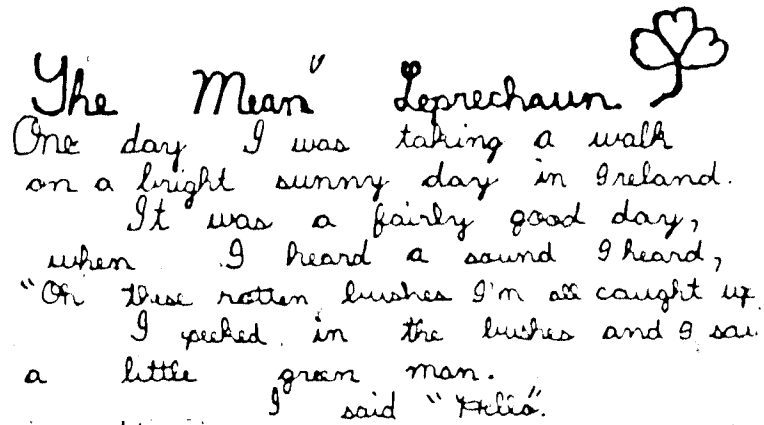 The Mean" Leprechaun
One day I was taking a walk
on a bright sunny day in Ireland.
It was a fairly good day,
when I heard a sound I heard,
"Oh these rotten bushes I'm all caught up
I peeked in the bushes and I saw
a little green man.
I said "Hello".